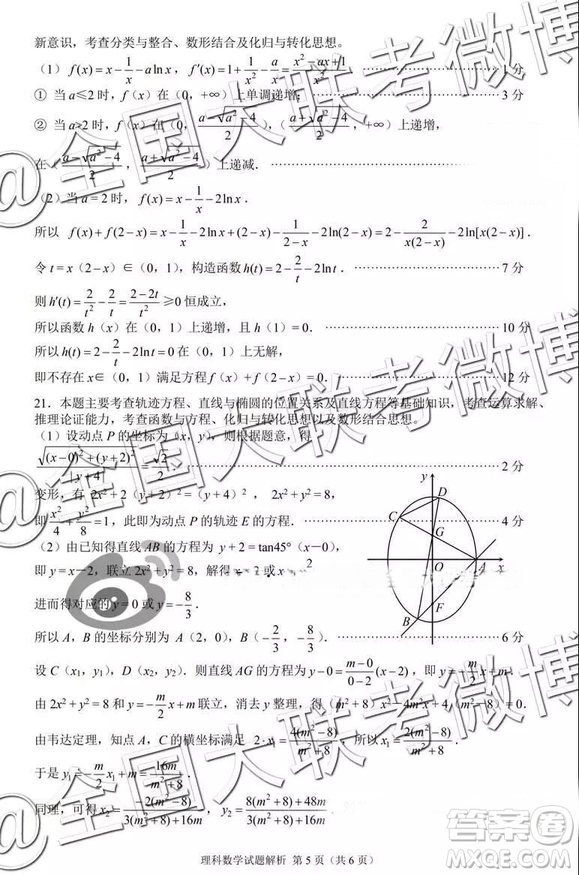 新意识，考查分类与整合、数形结合及化归与转化思想。
（1）f(x)=x-1/x-alnx，f′(x)=1+1/x²-a/x=(x²-ax+1)/x² ……1分
① 当a≤2时，f（x）在（0，+∞）上单调递增； ……3分
② 当a>2时，f（x）在（0，(a-√(a²-4))/2），（(a+√(a²-4))/2，+∞）上递增，
在（(a-√(a²-4))/2，(a+√(a²-4))/2）上递减．
（2）当a=2时，f(x)=x-1/x-2lnx．
所以 f(x)+f(2-x)=x-1/x-2lnx+(2-x)-1/(2-x)-2ln(2-x)=2-2/(x(2-x))-2ln[x(2-x)]．
令t=x（2-x）∈（0，1），构造函数h(t)=2-2/t-2lnt． ……7分
则h′(t)=2/t²-2/t=(2-2t)/t²≥0恒成立，
所以函数h（x）在（0，1）上递增，且h（1）=0． ……10分
所以h(t)=2-2/t-2lnt=0在（0，1）上无解，
即不存在x∈（0，1）满足方程f（x）+f（2-x）=0． ……12分
21．本题主要考查轨迹方程、直线与椭圆的位置关系及直线方程等基础知识，考查运算求解、
推理论证能力，考查函数与方程、化归与转化思想以及数形结合思想。
（1）设动点P的坐标为（x，y），则根据题意，得
√((x-0)²+(y+2)²)/|y+4|=√2/2． ……2分
变形，有 2x²+2（y+2）²=（y+4）²，2x²+y²=8，
即x²/4+y²/8=1，此即为动点P的轨迹E的方程． ……4分
（2）由已知得直线AB的方程为 y+2=tan45°（x-0），
即y=x-2，联立2x²+y²=8，解得x=2或x=
进而得对应的y=0或y=-8/3．
所以A，B的坐标分别为 A（2，0），B（-2/3，-8/3）． ……6分
设C（x₁，y₁），D（x₂，y₂）．则直线AG的方程为y-0=(m-0)/(0-2)(x-2)，即y=-m/2x+m．
由2x²+y²=8和y=-m/2x+m联立，消去y整理，得（m²+8）x²-4m²x+4（m²-8）=0．
由韦达定理，知点A，C的横坐标满足 2·x₁=4(m²-8)/(m²+8)，所以x₁=2(m²-8)/(m²+8)．
于是y₁=-m/2x₁+m=16m/(m²+8)．
同理，可得x₂=-2(m²-8)/(3(m²+8)+16m)，y₂=(8(m²+8)+48m)/(3(m²+8)+16m)．
y
D
C
G
O
A
x
F
B
理科数学试题解析 第5页（共6页）
@全国大联考微博
@全国大联考微博
@全国大联考微博
答案圈
MXQE.COM